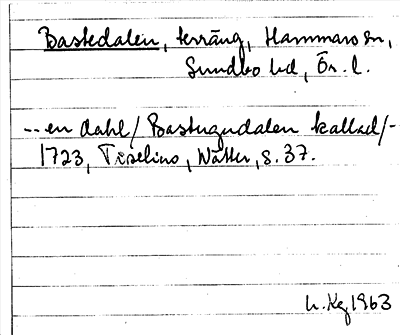 Bastedalen, terräng, Hammars sn,
Sundbo hd, Ör. l.
--en dahl/Bastugudalen kallad/-
1723, Tiselius, Wätter, s. 37.
h. Kg 1963